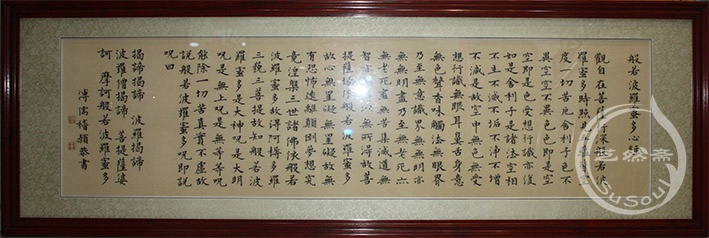 般若波羅蜜多心經
觀自在菩薩行深般若波
羅蜜多時照見五蘊皆空
度一切苦厄舍利子色不
異空空不異色色即是空
空即是色受想行識亦復
如是舍利子是諸法空相
不生不滅不垢不淨不增
不減是故空中無色無受
想行識無眼耳鼻舌身意
無色聲香味觸法無眼界
乃至無意識界無無明亦
無無明盡乃至無老死亦
無老死盡無苦集滅道無
智亦無得以無所得故菩
提薩埵依般若波羅蜜多
故心無罣礙無罣礙故無
有恐怖遠離顛倒夢想究
竟涅槃三世諸佛依般若
波羅蜜多故得阿耨多羅
三藐三菩提故知般若波
羅蜜多是大神呪是大明
呪是無上呪是無等等呪
能除一切苦真實不虛故
說般若波羅蜜多呪即說
呪曰
揭諦揭諦 波羅揭諦
波羅僧揭諦 菩提薩婆
訶 摩訶般若波羅蜜多
溥儒稽顙恭書
SuSoul